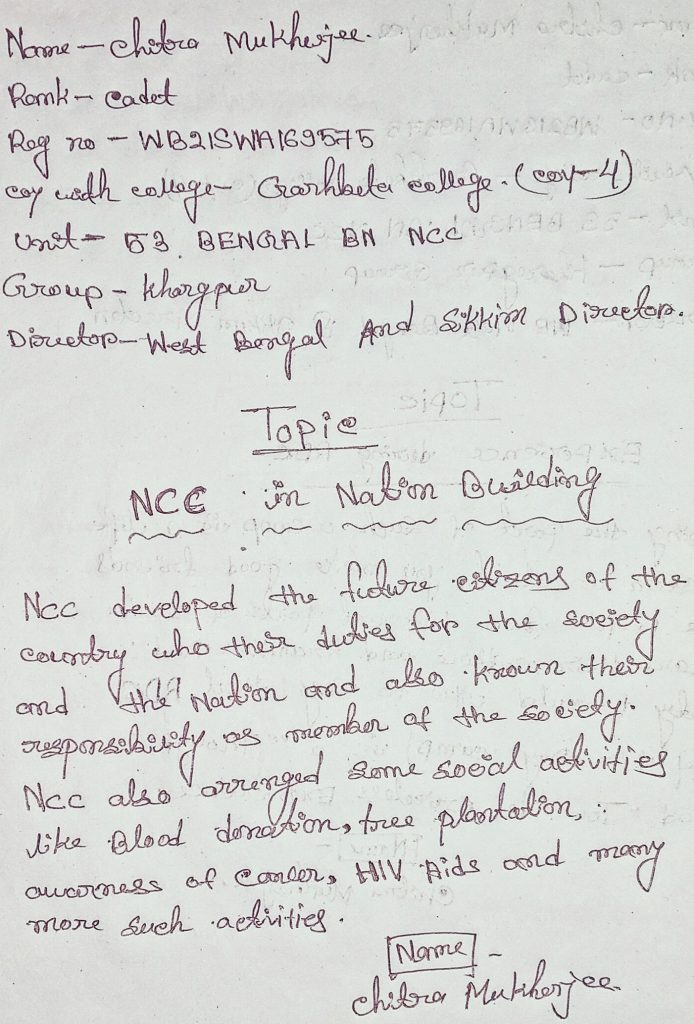 Name - Chitra Mukherjee.
Rank - Cadet
Reg no - WB21SWA169575
coy with college - Garhbeta college. (coy-4)
Unit - 53 BENGAL BN NCC
Group - Khargpur
Director - West Bengal And Sikkim Director.
Topic
NCC in Nation Building
NCC developed the future citizens of the
country who their duties for the society
and the Nation and also known their
responsibility as member of the society.
NCC also arrenged some social activities
like Blood donation, tree plantation,
awarness of Cancer, HIV Aids and many
more such activities.
Name -
Chitra Mukherjee.